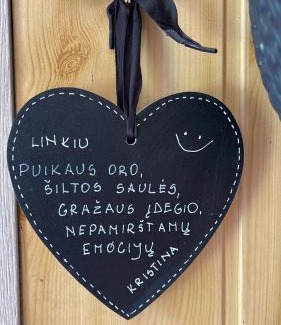 LINKIU
PUIKAUS ORO,
ŠILTOS SAULĖS,
GRAŽAUS ĮDEGIO,
NEPAMIRŠTAMŲ
EMOCIJŲ
KRISTINA